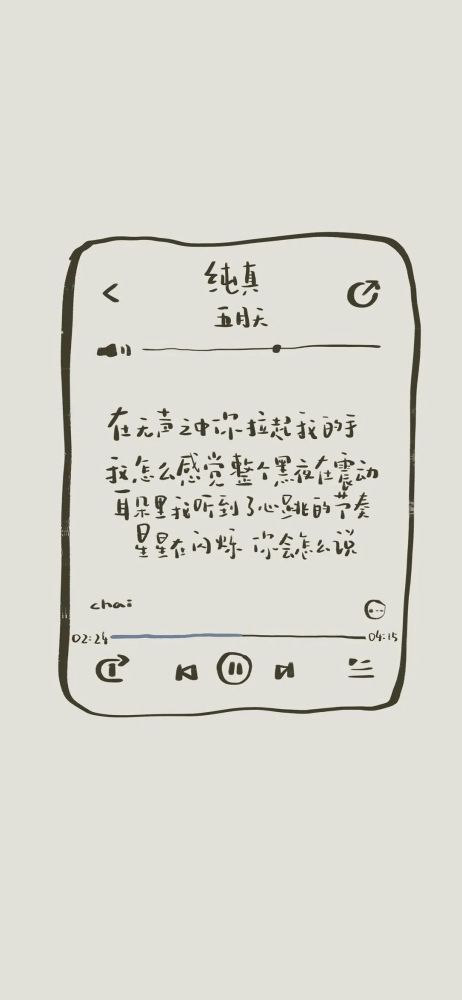 纯真
五月天
在无声之中你拉起我的手
我怎么感觉整个黑夜在震动
耳朵里我听到了心跳的节奏
星星在闪烁 你会怎么说
chai
02:24 04:15